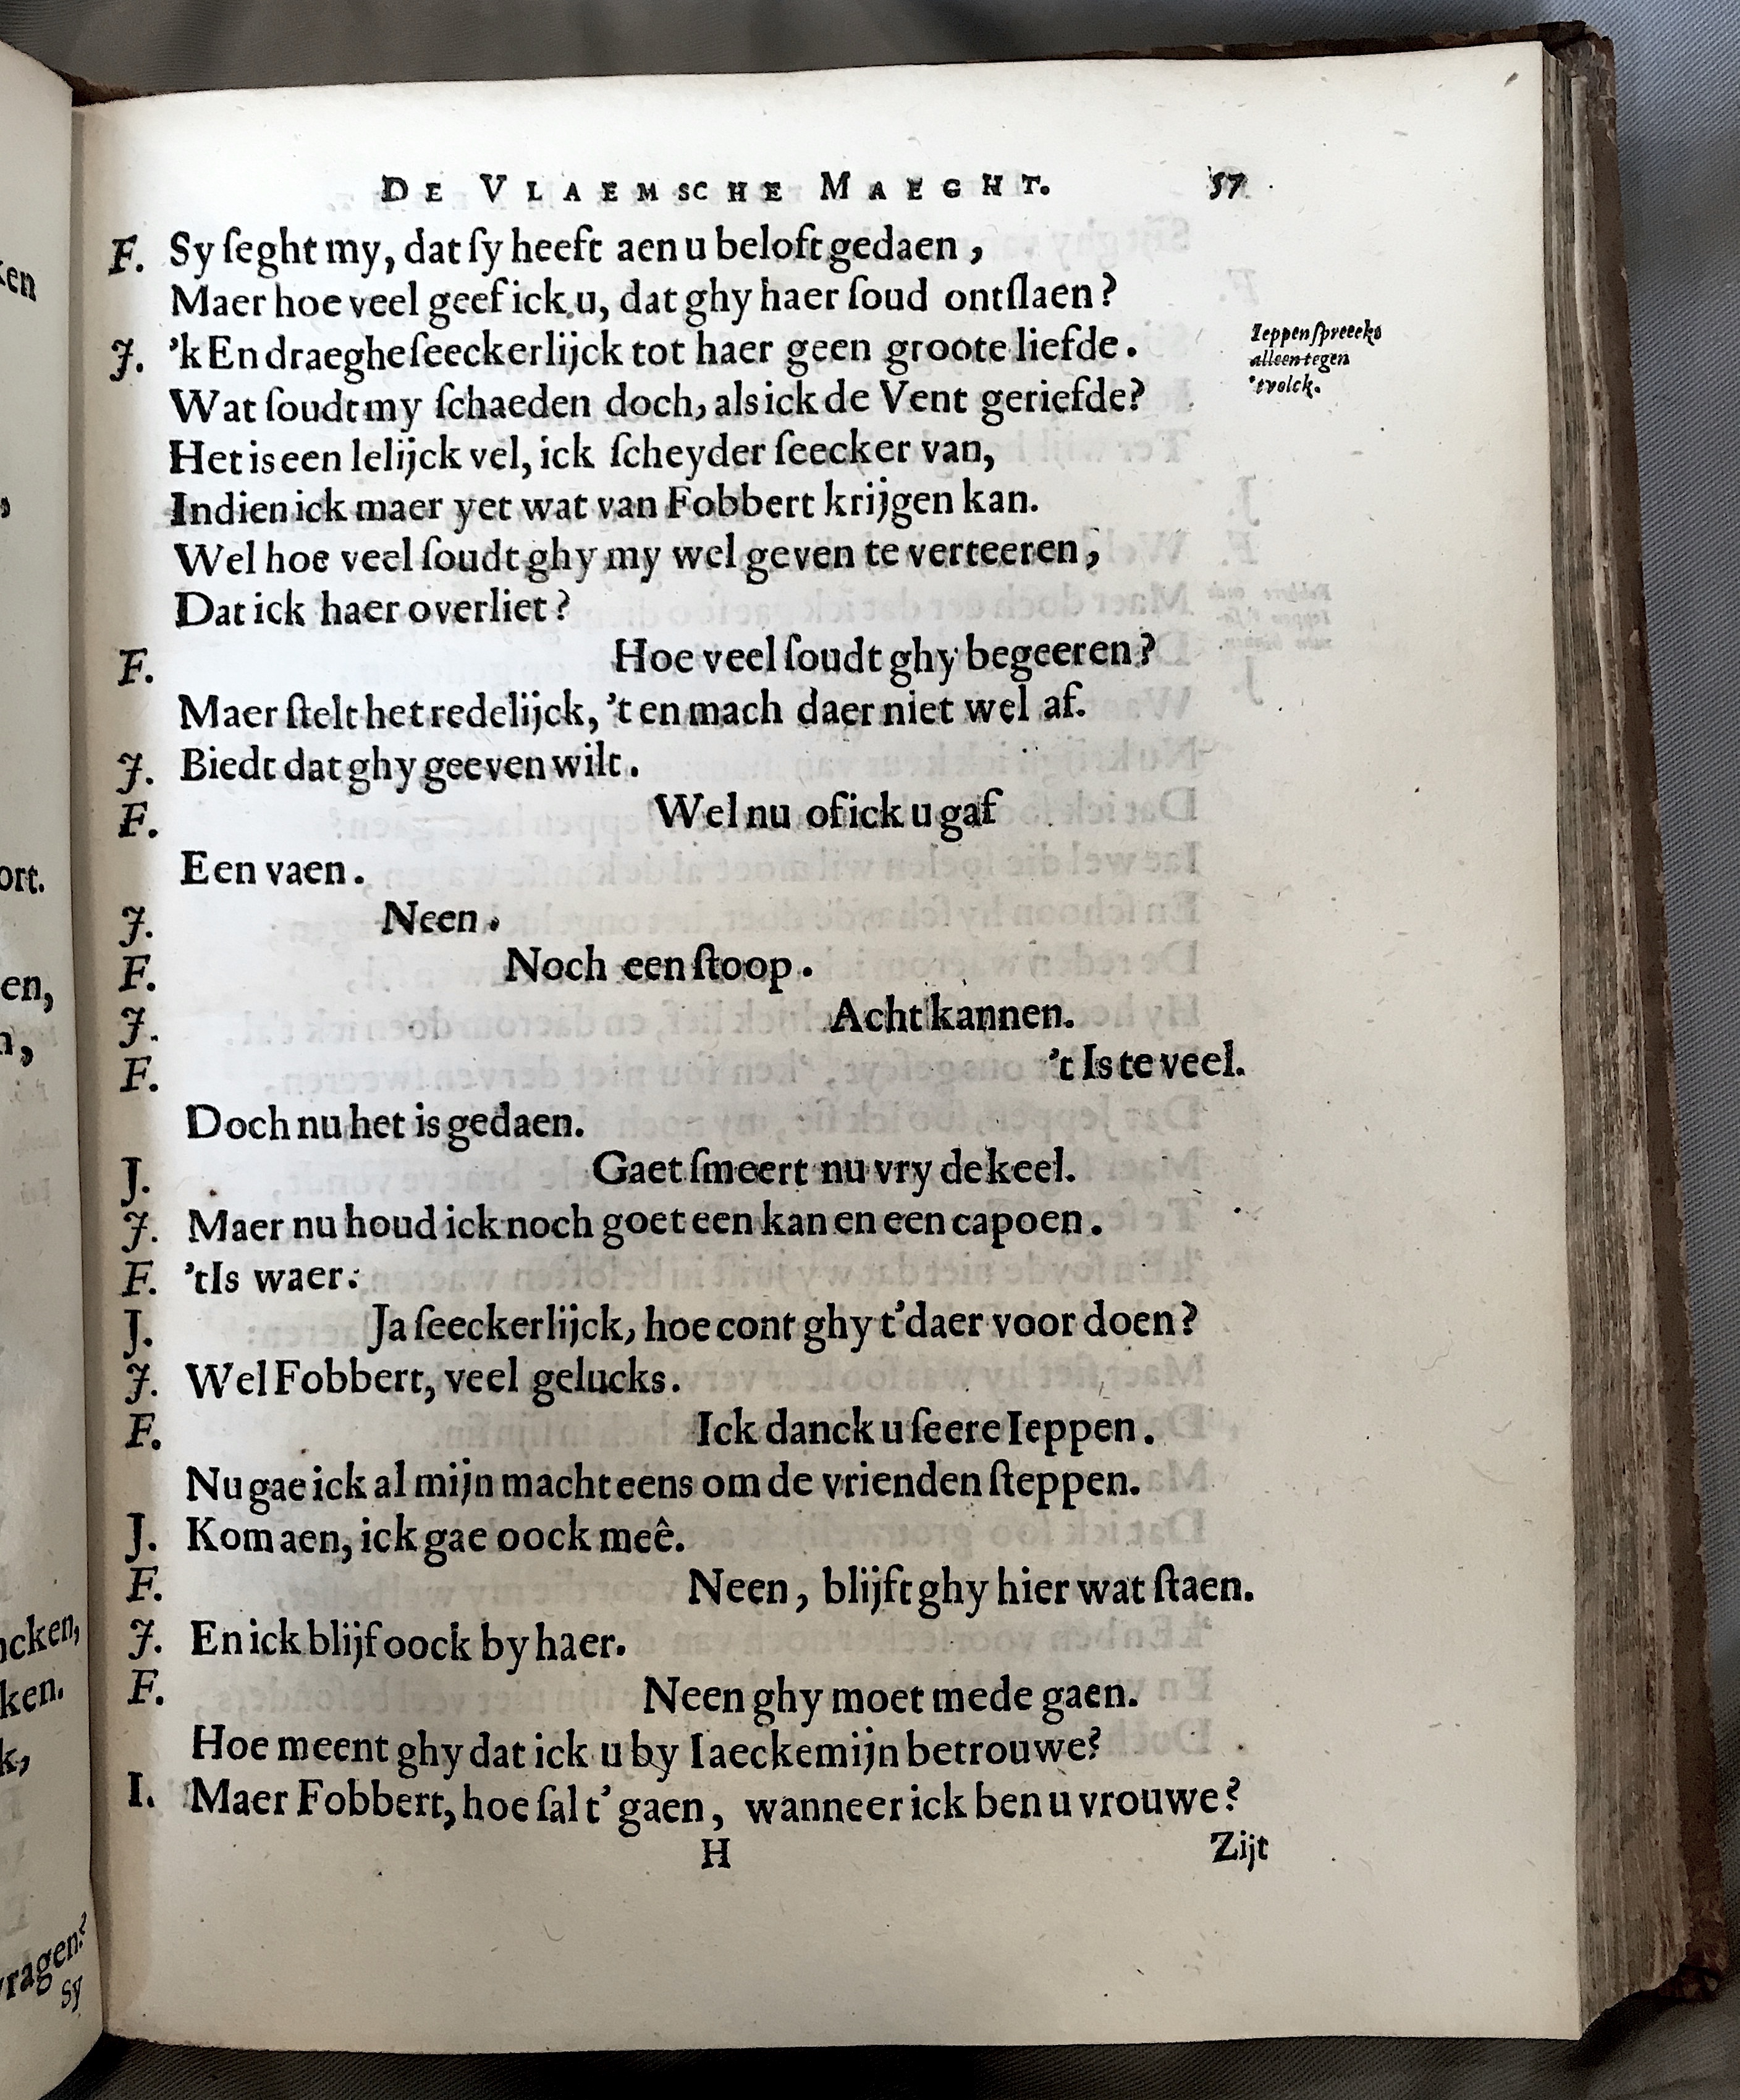 DE VLAEMSCHE MAEGHT. 57
F. Sy ſeght my, dat ſy heeft aen u beloft gedaen,
Maer hoe veel geef ick u, dat ghy haer ſoud ontſlaen?
J. 'k En draeghe ſeeckerlijck tot haer geen groote liefde.
Ieppen ſpreeckt
alleen tegen
'tvolck.
Wat ſoudt my ſchaeden doch, als ick de Vent geriefde?
Het is een lelijck vel, ick ſcheyder ſeecker van,
Indien ick maer yet wat van Fobbert krijgen kan.
Wel hoe veel ſoudt ghy my wel geven te verteeren,
Dat ick haer overliet?
F. Hoe veel ſoudt ghy begeeren?
Maer ſtelt het redelijck, 't en mach daer niet wel af.
J. Biedt dat ghy geeven wilt.
F. Wel nu of ick u gaf
Een vaen.
J. Neen.
F. Noch een ſtoop.
J. Acht kannen.
F. 't Is te veel.
Doch nu het is gedaen.
J. Gaet ſmeert nu vry de keel.
J. Maer nu houd ick noch goet een kan en een capoen.
F. 'tIs waer.
J. Ja ſeeckerlijck, hoe cont ghy t'daer voor doen?
J. Wel Fobbert, veel gelucks.
F. Ick danck u ſeere Ieppen.
Nu gae ick al mijn macht eens om de vrienden ſteppen.
J. Kom aen, ick gae oock meê.
F. Neen, blijft ghy hier wat ſtaen.
J. En ick blijf oock by haer.
F. Neen ghy moet mede gaen.
Hoe meent ghy dat ick u by Iaeckemijn betrouwe?
I. Maer Fobbert, hoe ſal t' gaen, wanneer ick ben u vrouwe?
H Zijt